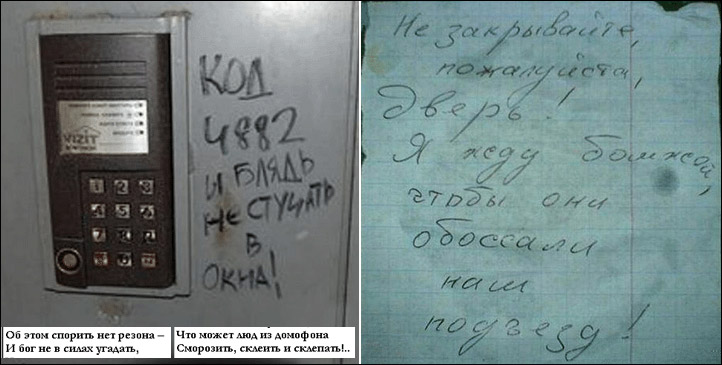 КОД
4882
И БЛЯДЬ
НЕ СТУЧАТЬ
В
ОКНА!
VIZIT
1 2 3
4 5 6
7 8 9
0
Об этом спорить нет резона –
И бог не в силах угадать,
Что может люд из домофона
Сморозить, склеить и склепать!..
Не закрывайте,
пожалуйста,
дверь!
Я жду бомжой,
чтобы они
обоссали
наш
подъезд!